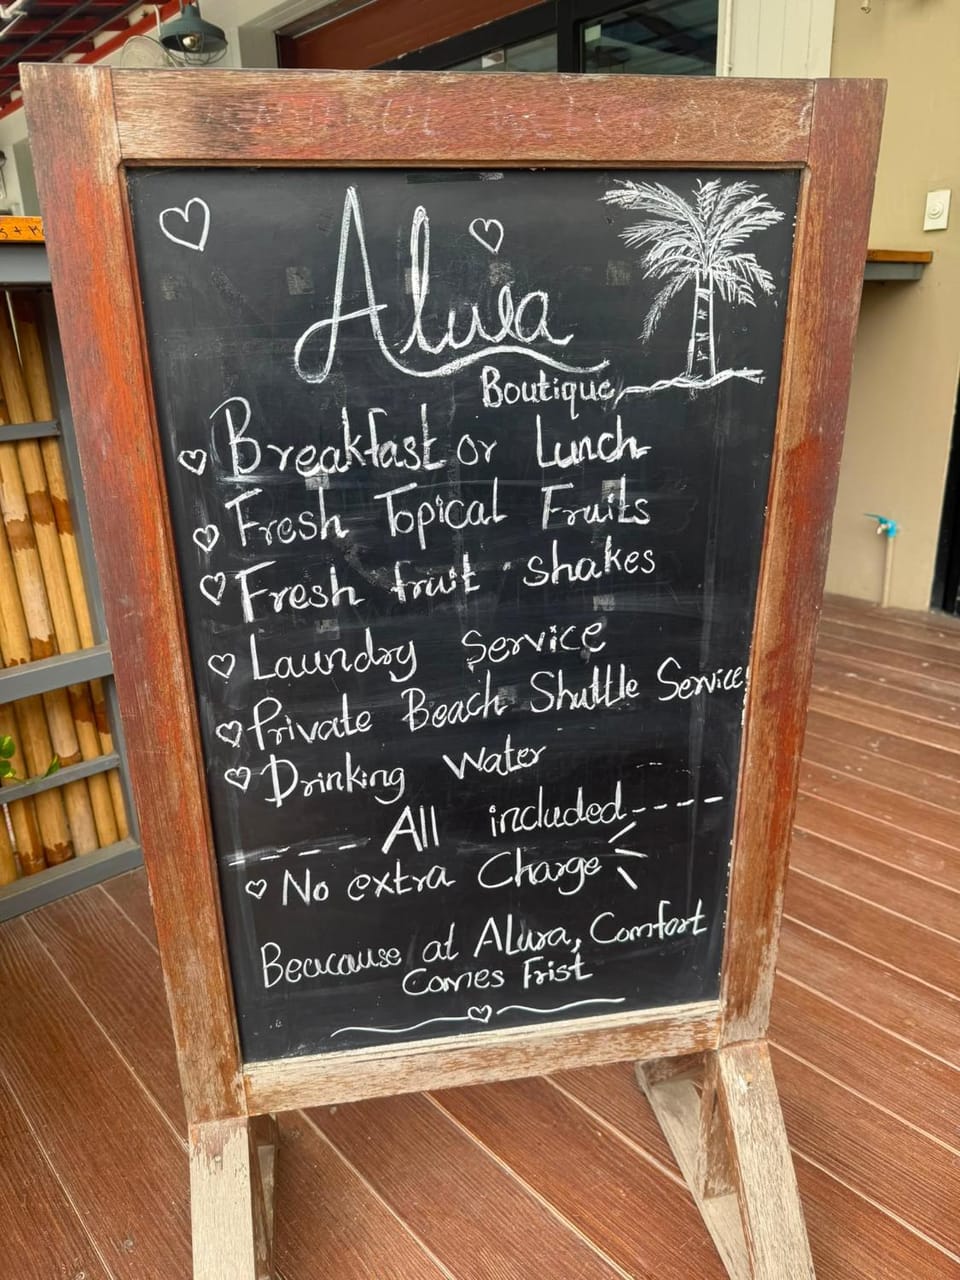 Alura
Boutique
Breakfast or Lunch
Fresh Topical Fruits
Fresh fruit shakes
Laundry Service
Private Beach Shuttle Service
Drinking Water
---- All included ----
No extra Charge
Becacause at Alura, Comfort
Comes Frist